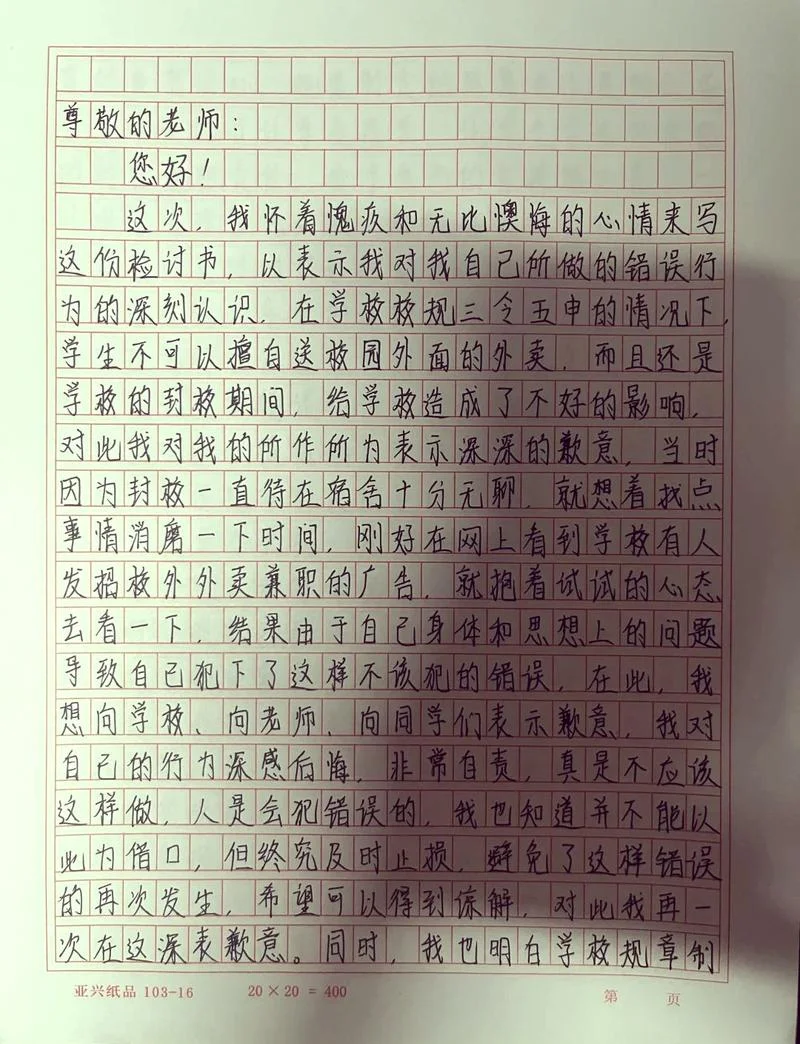 尊敬的老师：
您好！
这次，我怀着愧疚和无比懊悔的心情来写
这份检讨书，以表示我对我自己所做的错误行
为的深刻认识．在学校校规三令五申的情况下，
学生不可以擅自送校园外面的外卖．而且还是
学校的封校期间，给学校造成了不好的影响，
对此我对我的所作所为表示深深的歉意，当时
因为封校一直待在宿舍十分无聊．就想着找点
事情消磨一下时间，刚好在网上看到学校有人
发招校外外卖兼职的广告，就抱着试试的心态
去看一下．结果由于自己身体和思想上的问题
导致自己犯下了这样不该犯的错误．在此，我
想向学校、向老师、向同学们表示歉意，我对
自己的行为深感后悔，非常自责，真是不应该
这样做，人是会犯错误的，我也知道并不能以
此为借口，但终究及时止损，避免了这样错误
的再次发生，希望可以得到谅解，对此我再一
次在这深表歉意。同时，我也明白学校规章制
亚兴纸品 103-16 20×20=400 第 页